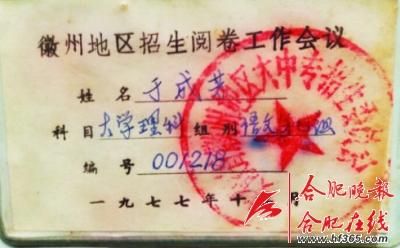 徽州地区招生阅卷工作会议
姓名 于成芳
科目 大学理科 组别 语文
编号 001218
一九七七年十 月
州地区大中专招生委员会
合肥晚报
合肥在线
www.hf365.com